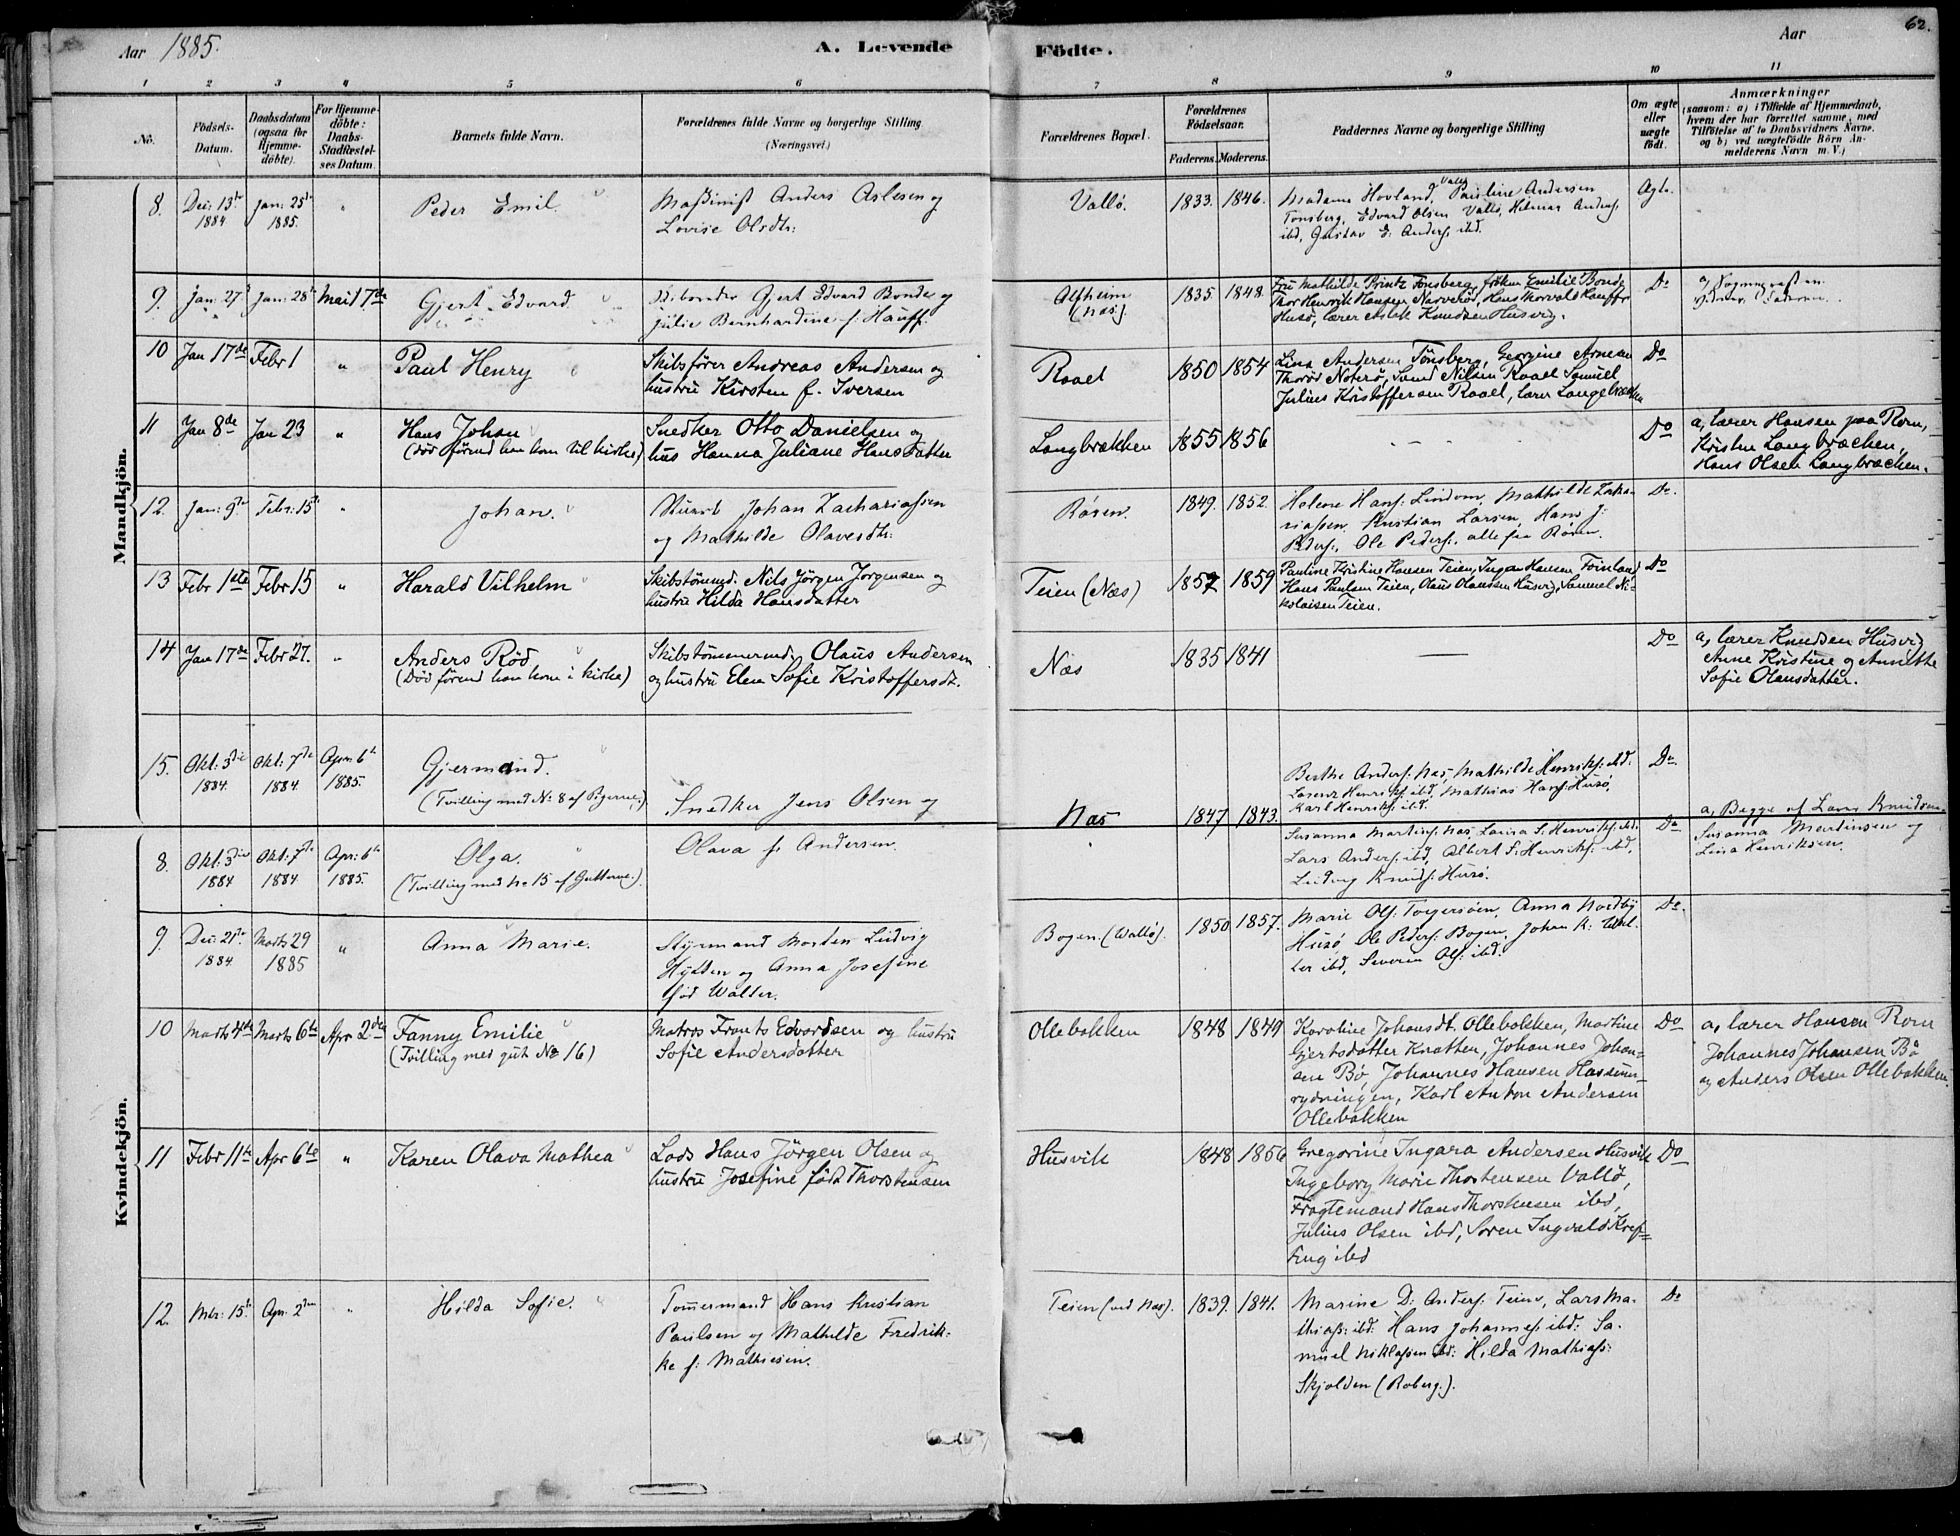 Aar 1885.
A. Levende Födte.
Aar
62.
1 2 3 4 5 6 7 8 9 10 11
No.
Födsels-Datum.
Daabsdatum (ogsaa for Hjemme-döbte).
For Hjemme-döbte: Daabs-Stadfæstel-ses Datum.
Barnets fulde Navn.
Forældrenes fulde Navne og borgerlige Stilling (Næringsvei)
Forældrenes Bopæl.
Forældrenes Födselsaar.
Faderens. Moderens.
Faddernes Navne og borgerlige Stilling
Om ægte eller uægte födt.
Anmærkninger
(saasom: a) i Tilfælde af Hjemmedaab, hvem der har forrettet samme, med Tilföielse af to Daabsvidners Navne, og b) ved uægtefödte Börn Anmelderens Navn m. V.)
Mandkjön.
8. Dec: 13de 1884 Jan: 25de 1885. " Peder Emil.
Maskinist Anders Aslesen og
Lovise Olsdtr:
Vallö. 1833. 1846.
Madame Hovland, Vallö Pauline Andersen
Tönsberg, Edvard Olsen Vallö, Hilmar Anders:
ibd, Gustav E. Anders: ibd.
Ægte.
9. Jan: 27de Jan: 28de Mai 17de Gjert Edvard
Gjert Edvard Bonde og
Julie Bernhardine f: Hauff.
Olsheim (Næs). 1835. 1848.
Fru Mathilde Printz Tönsberg, fröken Emilie Bonde,
Thor Henrik Hansen Narveröd, Hans Thorvald Hauff
Husö, lærer Knudsen Husvig.
Do
10 Jan 17de Febr 1 " Paul Henry
Skibsförer Andreas Andersen og
hustru Kirsten f. Iversen
Roael 1850 1854
Lina Andersen Tönsberg, Georgine Arnesen
Thoröd Noterö, Svend Nilsen Roael Samuel
Julius Kristoffersen Roael, lærer Langebrækken
Do
11 Jan 8de Jan 23 " Hans Johan
(död förend han kom til kirke)
Snedker Otto Danielsen og
hus Hanna Juliane Hansdatter
Langbrækken 1855 1856
Do
a, lærer Hansen paa Rom,
Kristen Langbræcken,
Hans Olsen Langbræcken.
12. Jan: 9de Febr: 15de " Johan.
Johan Zachariassen
og Mathilde Olavesdtr:
Rören. 1849. 1852.
Helene Hans: Lindom, Mathilde Zacha-
riassen, Kristian Larsen, Hans J:
Peders:, Ole Peders:, alle fra Rören.
Do.
13 Febr 1ste Febr 15 " Harald Vilhelm
Skibstömmd. Nils Jörgen Jorgensen og
hustru Hilda Hansdatter
Teien (Næs) 1857 1859
Pauline Kristine Hansen Teien, Inger Hansen Föinland
Hans Paulsen Teien, Olaus Olaussen Husvig, Samuel Ni-
kolaisen Teien.
Do
14 Jan 17de Febr 27. " Anders Röd
(Död förend han kom i kirke)
Skibstömmermd. Olaus Andersen
og hustru Elen Sofie Kristoffersdt.
Næs 1835 1841
Do
a, lærer Knudsen Husvig
Anne Kristine og Annette
Sofie Olausdatter.
15. Okt: 3die 1884. Okt: 7de 1884. Apr: 6te 1885. Gjermund.
(Tvilling med No 8 af Pigerne.)
Snedker Jens Olsen og
Næs 1847 1843.
Berthe Anders: Næs, Mathilde Henriks: ibd.
Lorenz Henriks: ibd, Mathias Hans: Husö,
Karl Henriks: ibd.
Do.
a, Begge af Lærer Knudsen
Susanna Martinsen og
Lina Henriksen.
Kvindekjön.
8. Okt: 3die 1884 Okt: 7de 1884 Apr: 6te 1885. Olga.
(Tvilling med No 15 af Gutterne.)
Olava f: Andersen.
Susanna Martins: Næs, Laura S: Henriks: ibd.
Lars Anders: ibd, Albert S: Henriks: ibd,
Ludvig Knuds: Husö.
Do
9. Dec: 21de 1884. Marts 29 1885 " Anna Marie.
Styrmand Morten Ludvig
Hytten og Anna Josefine
föd Walter.
Bogen. (Wallö). 1850 1857.
Marie Ols: Torgersöen, Anna Nordby
Husö, Ole Peders: Bogen, Johan K: Wal-
ter ibd, Severin Ols: ibd.
Do.
10 Marts 4de Marts 6te Apr 2den Fanny Emilie
(Tvilling med gut No 16)
Matros Frants Edvardsen og hustru
Sofie Andersdatter
Ollebakken 1848 1849
Karoline Johansdt. Ollebakken, Martine
Gjertsdatter Knatten, Johannes Johan-
sen Bö, Johannes Hansen Hassum-
rydningen, Karl Anton Andersen
Ollebakken
Do
a, lærer Hansen Rom
Johannes Johansen Bö
og Anders Olsen Ollebakken.
11 Febr 11te Apr 6te " Karen Olava Mathea
Lods Hans Jörgen Olsen og
hustru Josefine föd Thorstensen
Husvik 1848 1856
Gregorine Ingara Andersen Husvik
Ingeborg Marie Thorstensen Vallö,
Fragtemand Hans Thorstensen ibd,
Julius Olsen ibd, Soren Ingvald Kref-
ting ibd
Do
12. Mrs: 15de Apr: 2den " Hilda Sofie.
Tömmermand Hans Kristian
Paulsen og Mathilde Fredrik-
ke f: Mathiesen.
Teien (ved Næs). 1839. 1841.
Marine D: Anders: Teien, Lars Ma-
thias: ibd: Hans Johannes: ibd: Sa-
muel Niklassen ibd: Hilda Mathias:
Skjolden (Roberg.).
Do